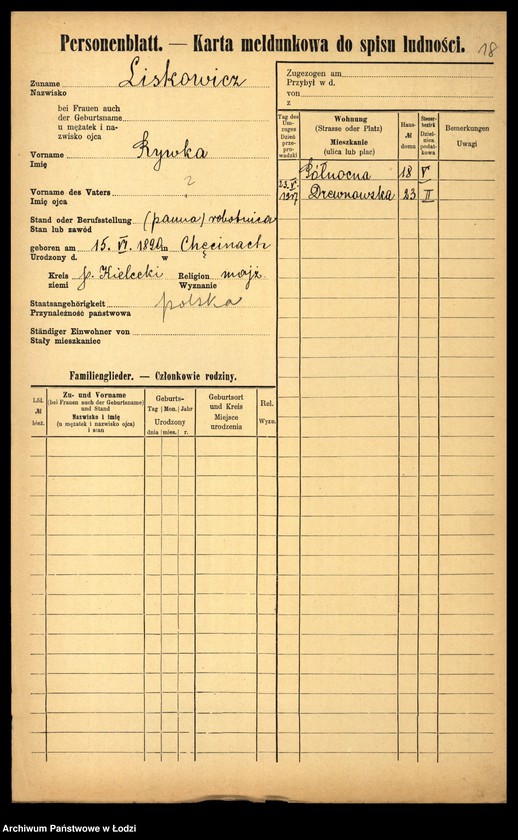 Personenblatt. — Karta meldunkowa do spisu ludności.
18
Zuname Liskowicz
Nazwisko
bei Frauen auch
der Geburtsname
u mężatek i na-
zwisko ojca
Vorname Rywka
Imię
Vorname des Vaters ?
Imię ojca
Stand oder Berufsstellung (panna) robotnica
Stan lub zawód
geboren am 15. VI. in Chęcinach
Urodzony d. w
Kreis p. Kielecki Religion mojż.
ziemi Wyznanie
Staatsangehörigkeit polska
Przynależność państwowa
Ständiger Einwohner von
Stały mieszkaniec
Familienglieder. — Członkowie rodziny.
Lfd. № bież.
Zu- und Vorname
(bei Frauen auch der Geburtsname)
und Stand
Nazwisko i imię
(u mężatek i nazwisko ojca)
i stan
Geburts-
Tag Mon. Jahr
Urodzony
dnia mies. r.
Geburtsort
und Kreis
Miejsce
urodzenia
Rel.
Wyzn.
Zugezogen am
Przybył w d.
von
z
Tag des
Um-
zuges
Dzień
prze-
pro-
wadzki
Wohnung
(Strasse oder Platz)
Mieszkanie
(ulica lub plac)
Haus-
№
domu
Steuer-
bezirk
Dziel-
nica
podat-
kowa
Bemerkungen
Uwagi
Północna 18 V
23.V. 1917 Drewnowska 23 II
Archiwum Państwowe w Łodzi